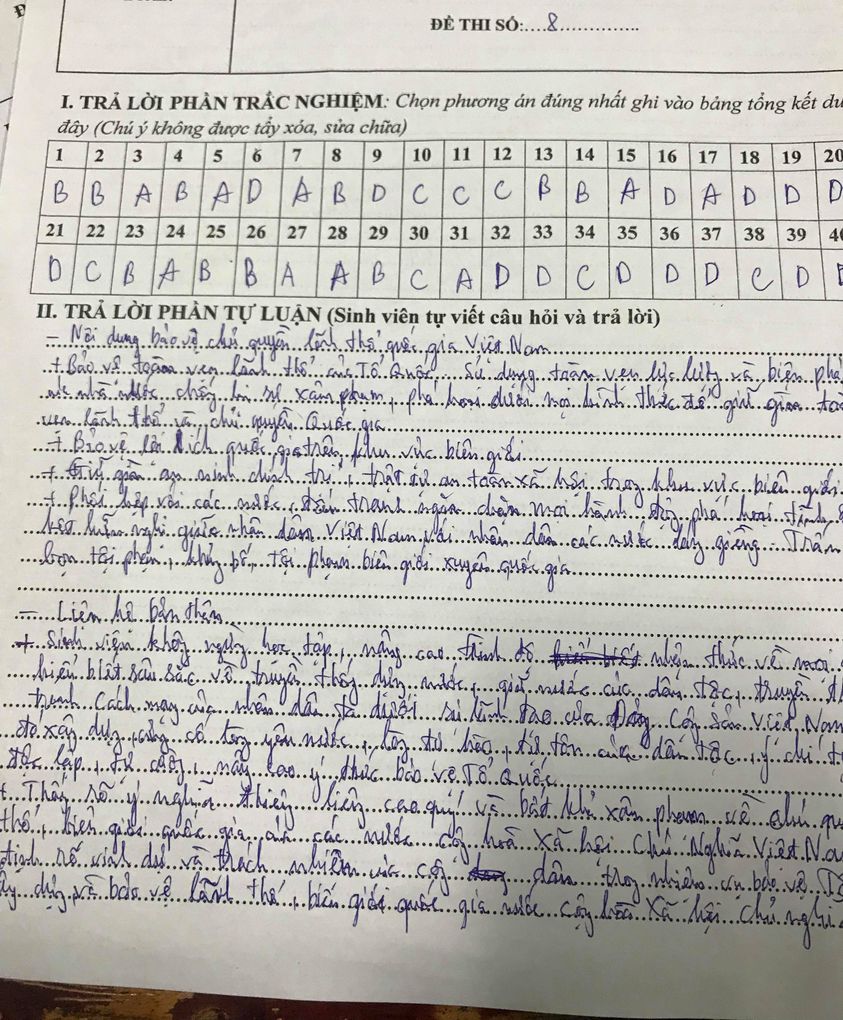 ĐỀ THI SỐ:....8...............
I. TRẢ LỜI PHẦN TRẮC NGHIỆM: Chọn phương án đúng nhất ghi vào bảng tổng kết
đây (Chú ý không được tẩy xóa, sửa chữa)
1 2 3 4 5 6 7 8 9 10 11 12 13 14 15 16 17 18 19 20
B B A B A D A B D C C C B B A D A D D D
21 22 23 24 25 26 27 28 29 30 31 32 33 34 35 36 37 38 39
D C B A B B A A B C A D D C D D D C D
II. TRẢ LỜI PHẦN TỰ LUẬN (Sinh viên tự viết câu hỏi và trả lời)
- Nội dung bảo vệ chủ quyền lãnh thổ quốc gia Việt Nam
+ Bảo vệ toàn vẹn lãnh thổ của Tổ Quốc, sử dụng toàn vẹn lực lượng và biện
nhà nước chống lại sự xâm phạm, phá hoại dưới mọi hình thức để giữ gìn
vẹn lãnh thổ và chủ quyền Quốc gia
+ Bảo vệ lợi ích quốc gia trên khu vực biên giới
+ Giữ gìn an ninh chính trị, trật tự an toàn xã hội trong khu vực biên giới
+ Phối hợp với các nước, đấu tranh ngăn chặn mọi hành động phá hoại tình
hữu nghị giữa nhân dân Việt Nam với nhân dân các nước láng giềng. Trấn
bọn tội phạm, khủng bố, tội phạm biên giới xuyên quốc gia
- Liên hệ bản thân
+ Sinh viên không ngừng học tập, nâng cao trình độ nhận thức về mọi
hiểu biết sâu sắc về truyền thống dựng nước, giữ nước của dân tộc, truyền
tranh cách mạng của nhân dân ta dưới sự lãnh đạo của Đảng Cộng Sản Việt Nam
đó xây dựng, củng cố lòng yêu nước, lòng tự hào, tự tôn của dân tộc, ý chí
độc lập, tự cường, nâng cao ý thức bảo vệ Tổ Quốc
+ Thấy rõ ý nghĩa thiêng liêng cao quý và bất khả xâm phạm về chủ
thổ, biên giới quốc gia của các nước cộng hoà Xã hội Chủ Nghĩa Việt
định rõ vinh dự và trách nhiệm của công dân trong nhiệm vụ bảo vệ
dựng và bảo vệ lãnh thổ, biên giới quốc gia nước cộng hòa Xã hội chủ